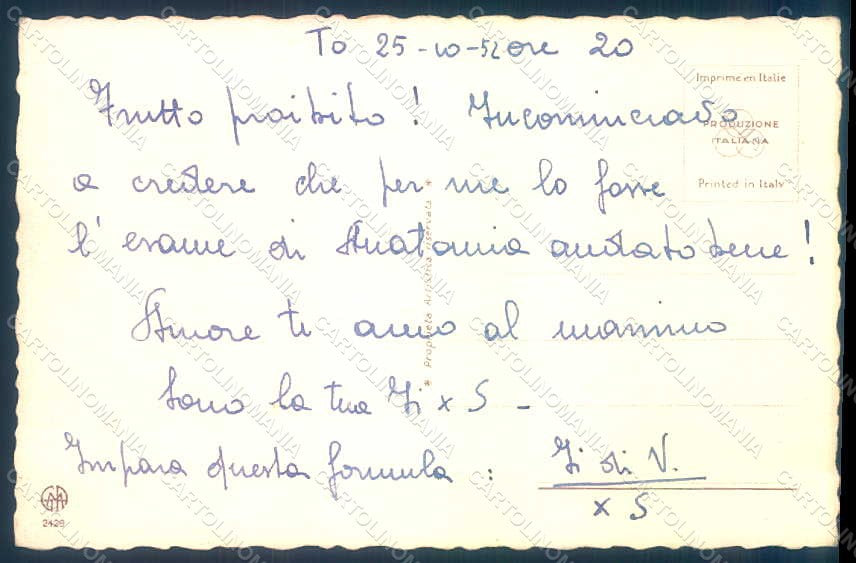 To 25-10-52 ore 20
Imprimé en Italie
Frutto proibito! Incominciavo
PRODUZIONE
ITALIANA
a credere che per me lo fosse
Printed in Italy
l'esame di Anatomia andato bene!
* Proprietà Artistica riservata *
Amore ti amo al massimo
Sono la tua Gi x S -
Impara questa formula: Gi di V.
x S
2428
CARTOLINOMANIA